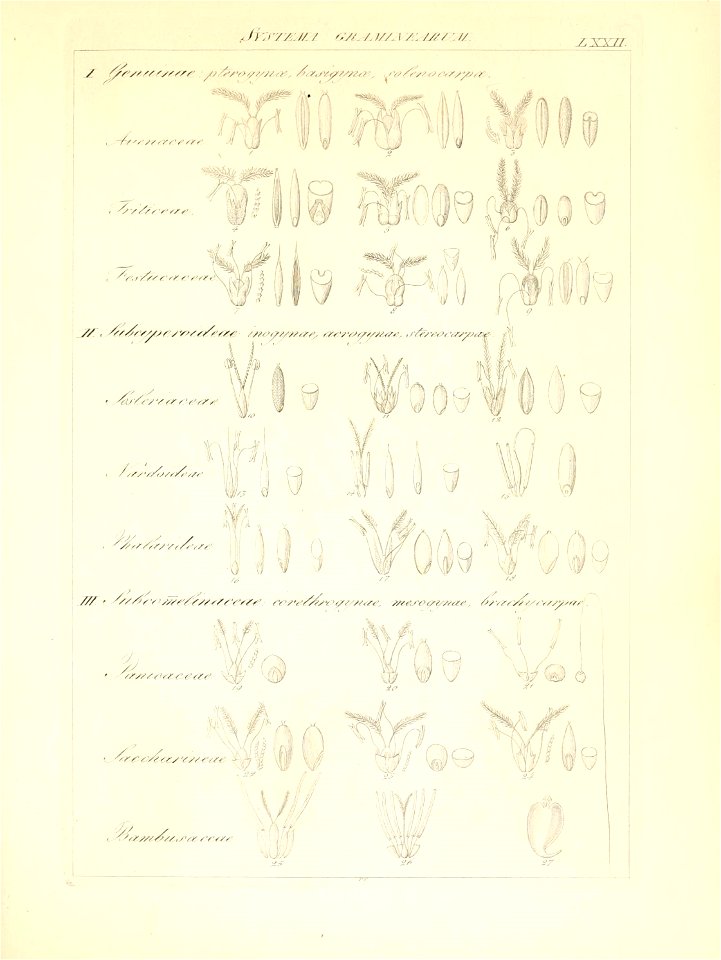 SYSTEMA GRAMINEARUM.
LXXII.
I Genuinae pterogynæ, basigynæ, colenocarpæ.
Avenaceae
1 2 3
Triticeae
4 5 6
Festucaceae
7 8 9
II Subcyperoideae inogynae, acrogynae, stereocarpae
Sesleriaceae
10 11 12
Nardoideae
13 14 15
Phalarideae
16 17 18
III Subcom̄elinaceae corethrogynae, mesogynae, brachycarpae.
Panicaceae
19 20 21
Saccharineae
22 23 24
Bambusaceae
25 26 27